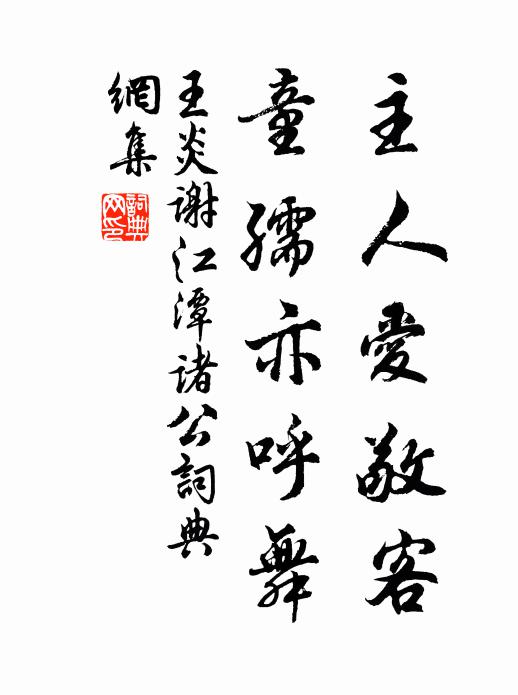 主人愛敬客
童孺亦呼舞
王炎謝江潭諸公詞典
網集
詞典网印